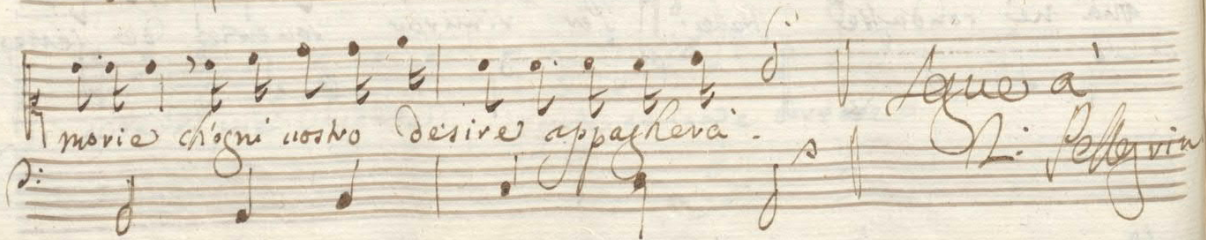 morie ch'ogni vostro desire appagherà.
Segue a
2: Pellegrin